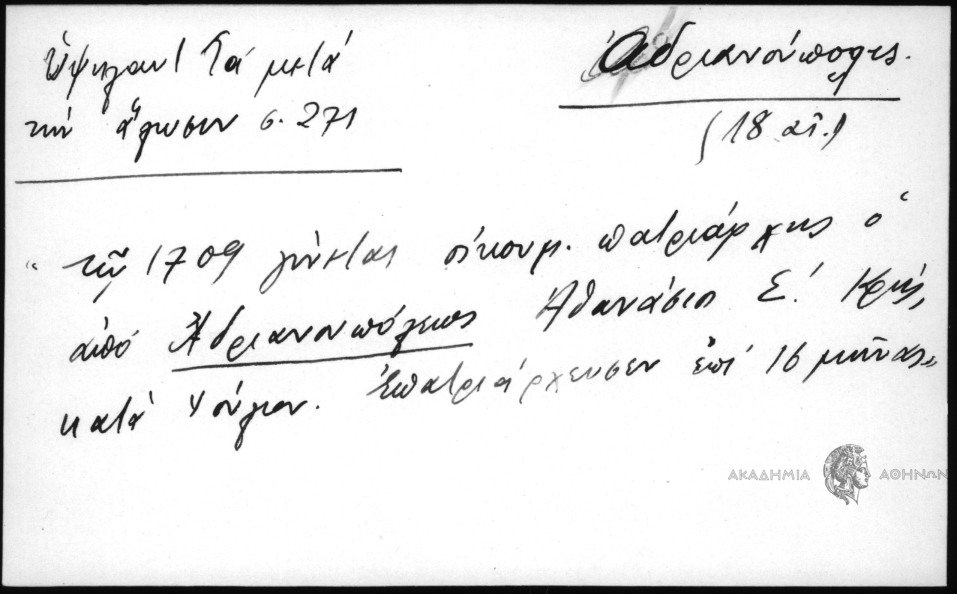 Ὑψηλαντ. Τά μετά
τήν ἅλωσιν σ. 271
Ἀδριανούπολις.
(18 αἰ.)
" τῷ 1709 γίνεται οἰκουμ. πατριάρχης ὁ
ἀπό Ἀδριανουπόλεως Ἀθανάσιος Ε΄. Κρής,
κατά Ἰούλιον. Ἐπατριάρχευσεν ἐπί 16 μῆνας"
ΑΚΑΔΗΜΙΑ ΑΘΗΝΩΝ